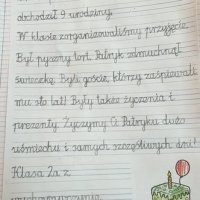 obchodził 9 urodziny.
W klasie zorganizowaliśmy przyjęcie.
Był pyszny tort. Patryk zdmuchnął
świeczkę. Byli goście, którzy zaśpiewali
mu sto lat! Były także życzenia i
prezenty. Życzymy Ci Patryku dużo
uśmiechu i samych szczęśliwych dni!
Klasa 2a z
wychowawczynią